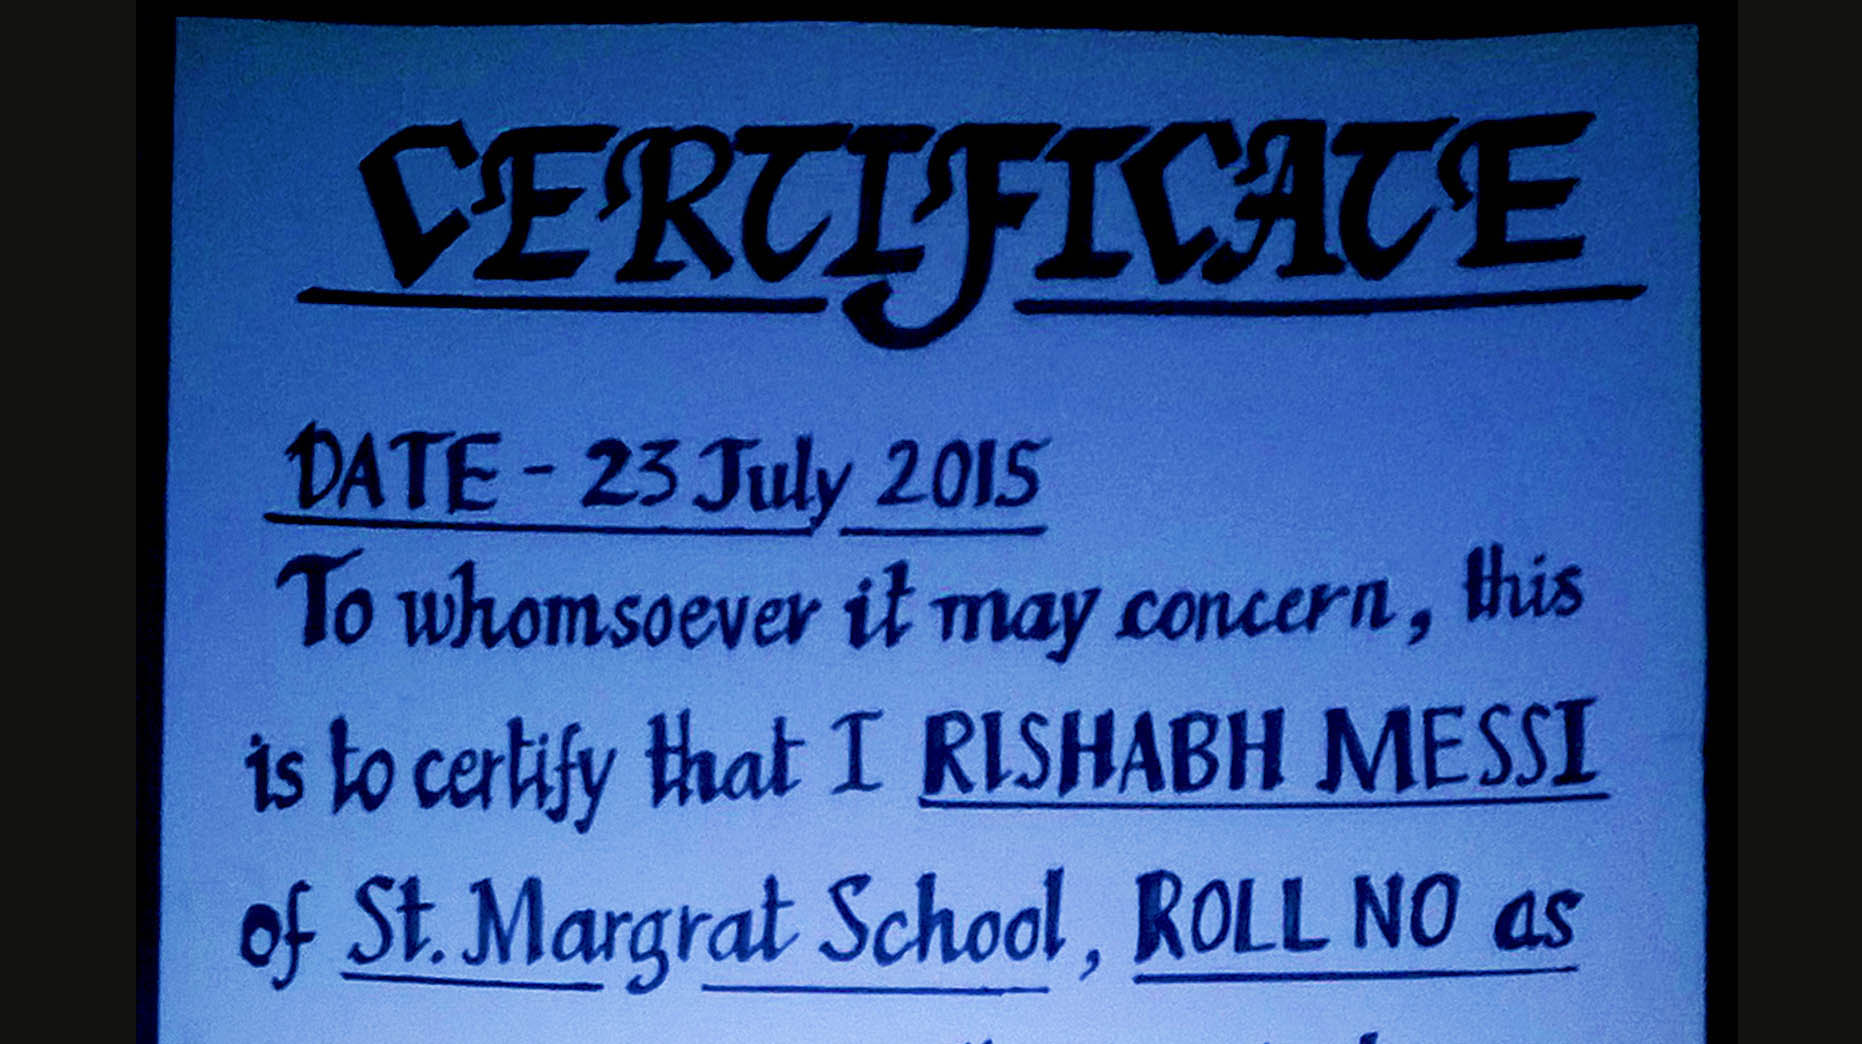 CERTIFICATE
DATE - 23 July 2015
To whomsoever it may concern, this
is to certify that I RISHABH MESSI
of St. Margrat School, ROLL NO as